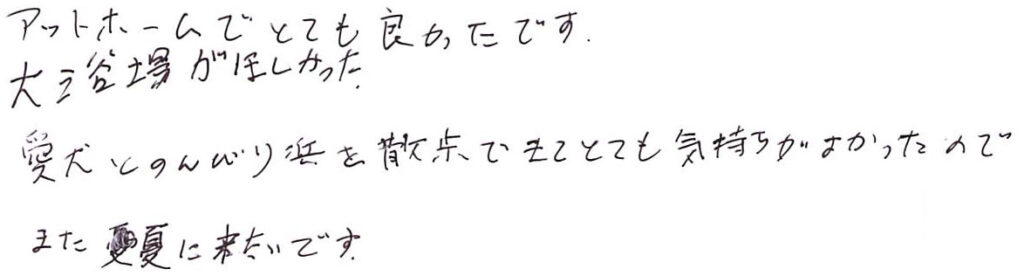 アットホームでとても良かったです.
大浴場がほしかった.
愛犬とのんびり浜を散歩できてとても気持ちがよかったので
また夏に来たいです.